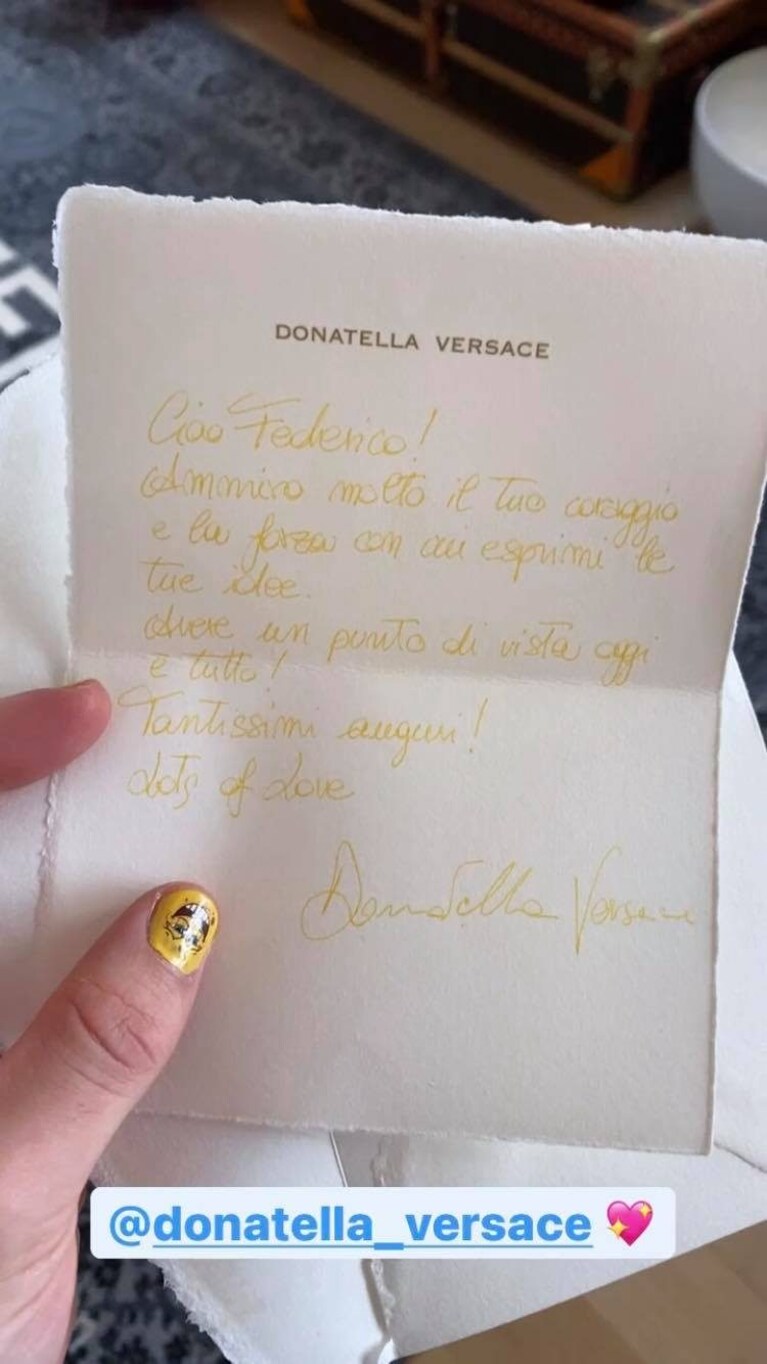 DONATELLA VERSACE
Ciao Federico!
Ammiro molto il tuo coraggio
e la forza con cui esprimi le
tue idee.
Avere un punto di vista oggi
è tutto!
Tantissimi auguri!
Lots of Love
Donatella Versace
@donatella_versace 💖